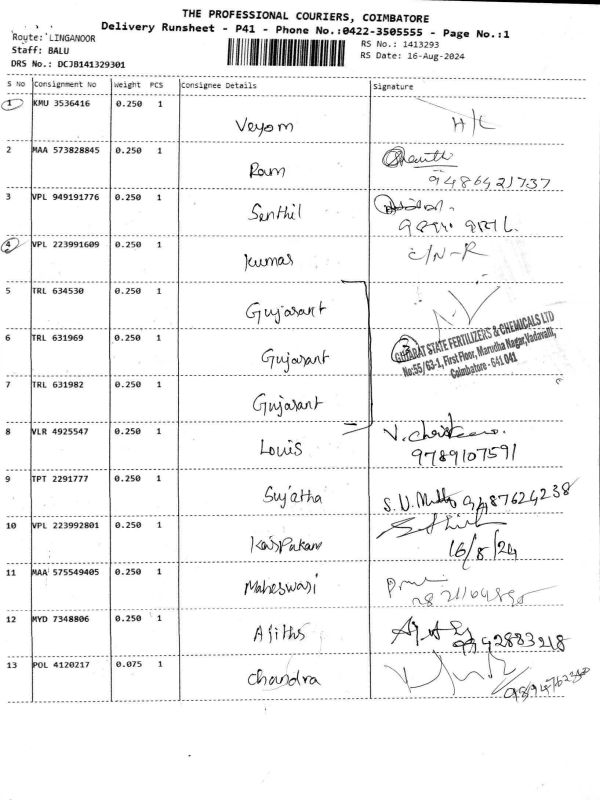 THE PROFESSIONAL COURIERS, COIMBATORE
Delivery Runsheet - P41 - Phone No.:0422-3505555 - Page No.:1
Route: LINGANOOR
RS No.: 1413293
Staff: BALU
RS Date: 16-Aug-2024
DRS No.: DCJB141329301
S No Consignment No Weight PCS Consignee Details Signature
1 KMU 3536416 0.250 1
Veyom H/C
2 MAA 573828845 0.250 1
Ram
9486421737
3 VPL 949191776 0.250 1
Senthil
4 VPL 223991609 0.250 1
Kumar C/N-R
5 TRL 634530 0.250 1
Gujarant
6 TRL 631969 0.250 1
Gujarant
3
GUJARAT STATE FERTILIZERS & CHEMICALS LTD
No:55/63-1, First Floor, Marutha Nagar, Vadavalli,
Coimbatore - 641 041
7 TRL 631982 0.250 1
Gujarant
8 VLR 4925547 0.250 1
Louis
9789107591
9 TPT 2291777 0.250 1
Sujatha 9487624238
10 VPL 223992801 0.250 1
16/8/24
11 MAA 575549405 0.250 1
Maheswari
12 MYD 7348806 0.250 1
Ajiths
9342883218
13 POL 4120217 0.075 1
Chandra